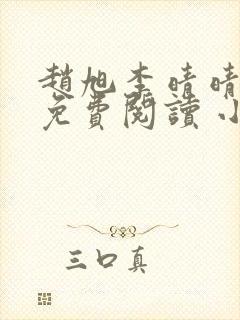 趙旭李晴晴
免費閱讀小
三口真